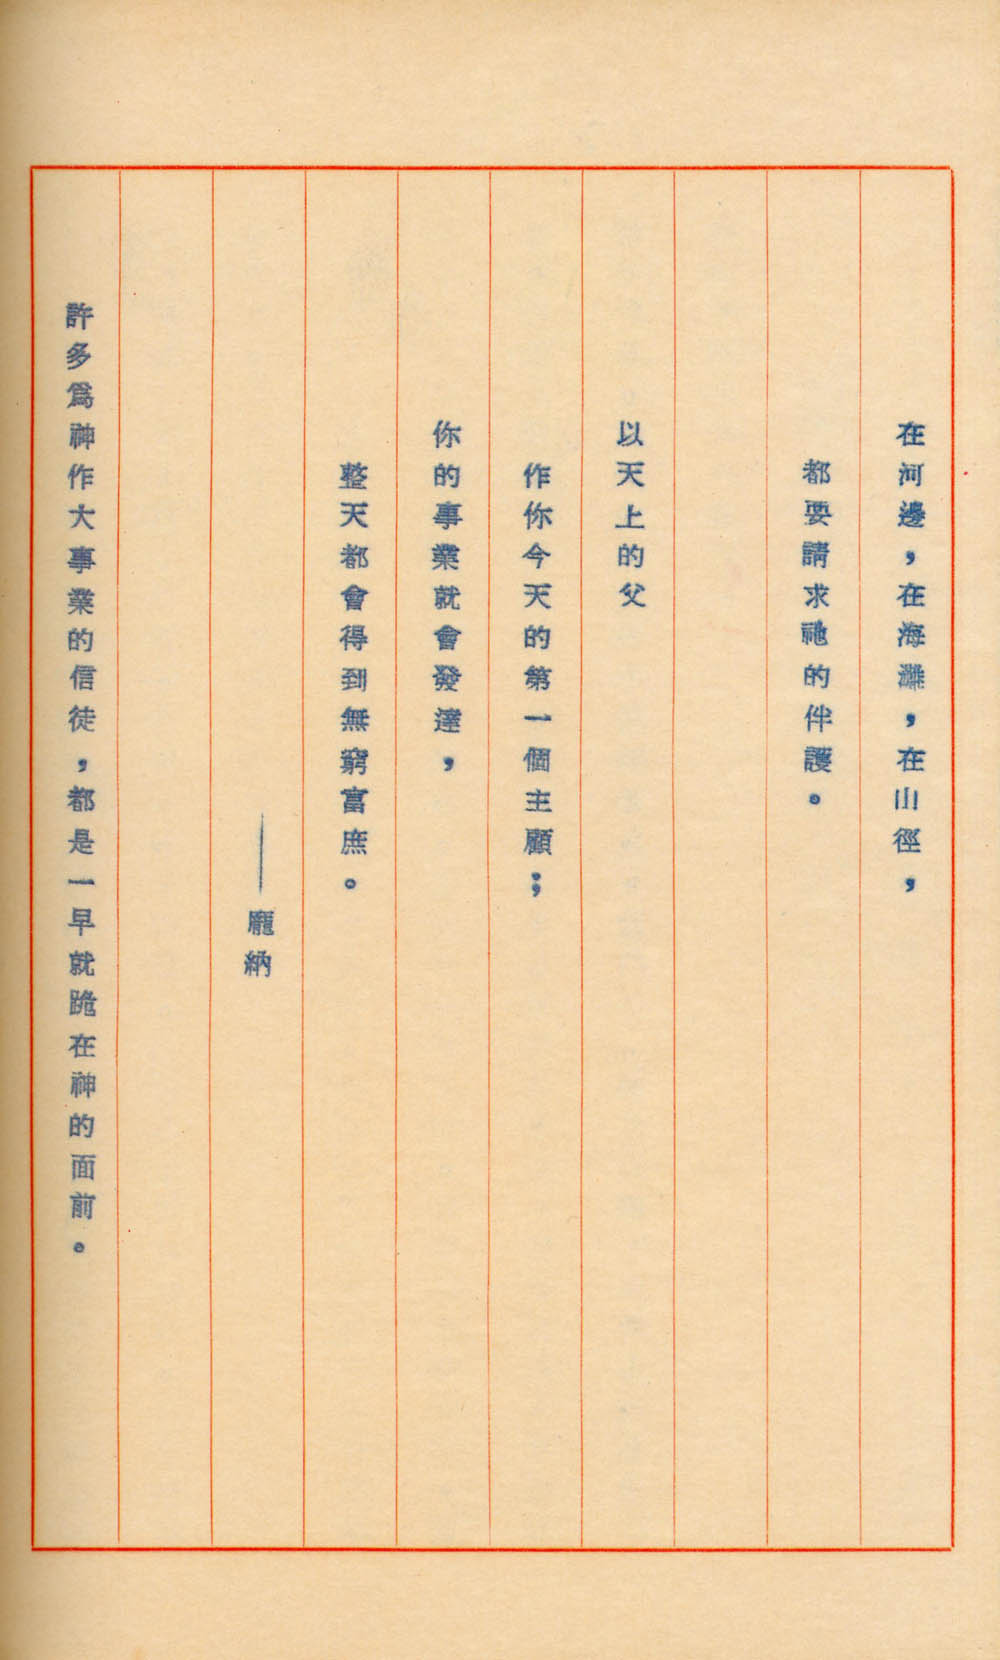 在河邊，在海灘，在山徑，
都要請求祂的伴護。
以天上的父
作你今天的第一個主顧；
你的事業就會發達，
整天都會得到無窮富庶。
——龐納
許多爲神作大事業的信徒，都是一早就跪在神的面前。